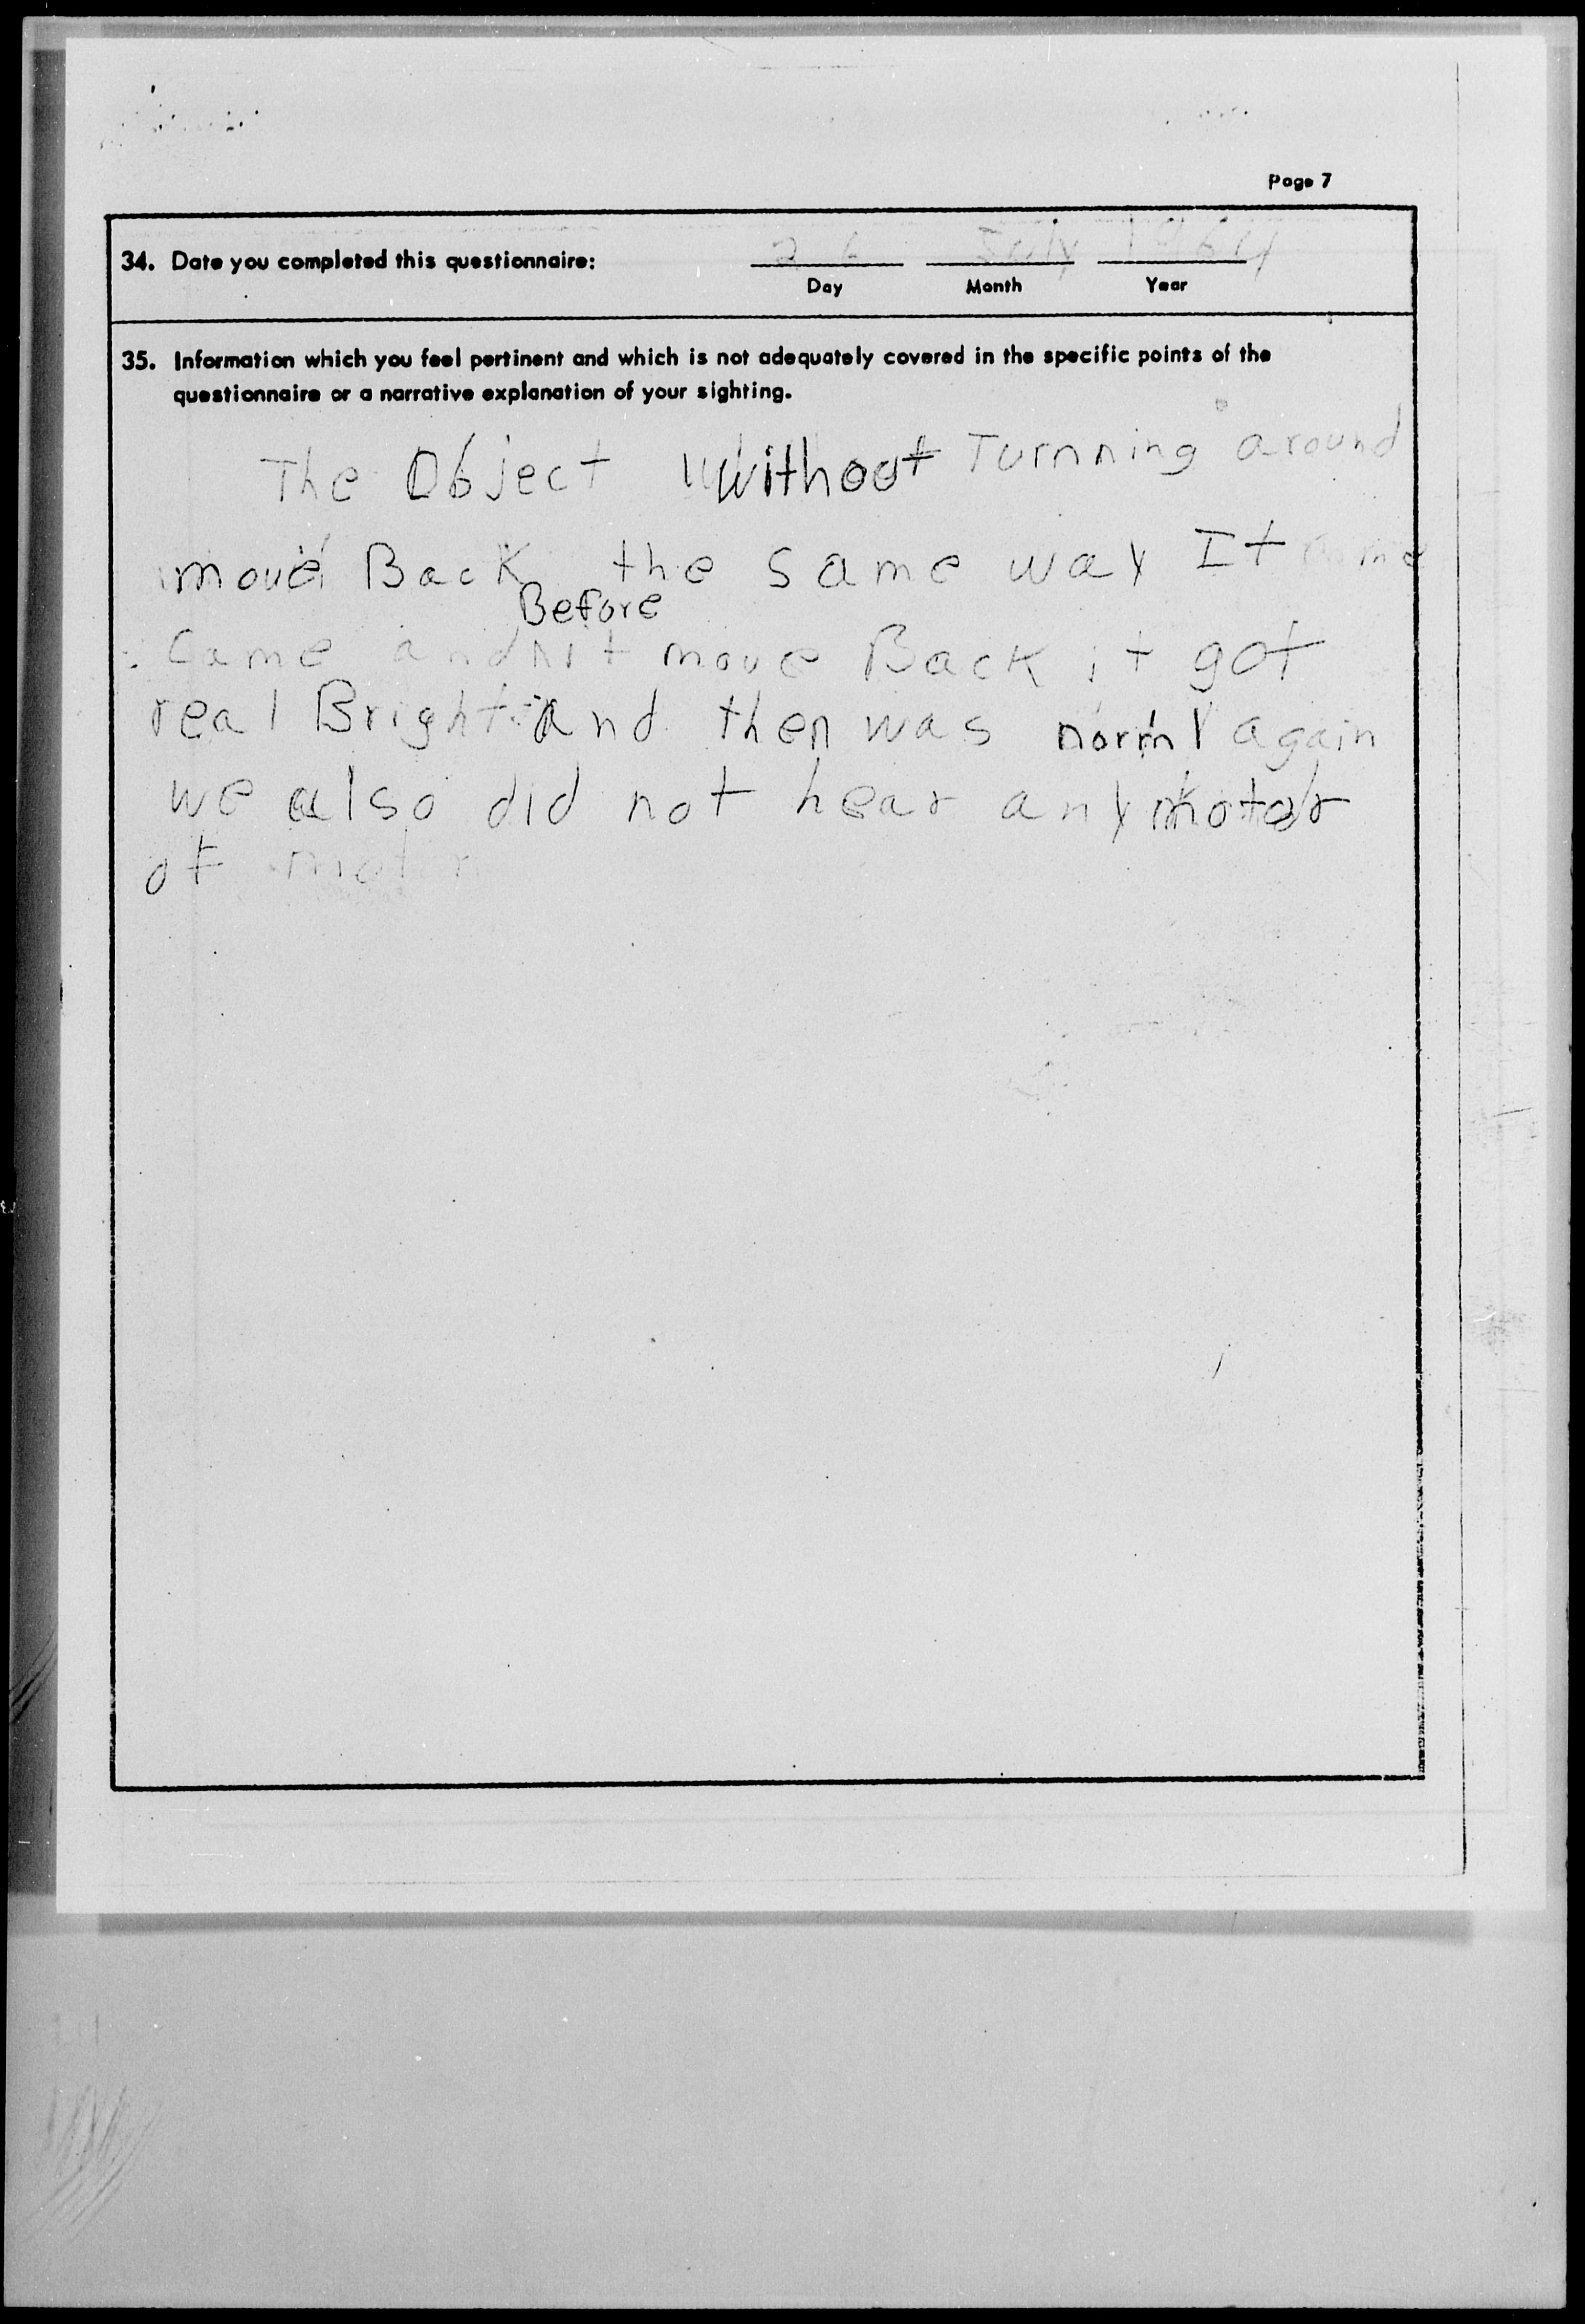 Page 7
34. Date you completed this questionnaire: 26 July 1964
Day Month Year
35. Information which you feel pertinent and which is not adequately covered in the specific points of the
questionnaire or a narrative explanation of your sighting.
The Object Without Turnning around
move Back the same way It
Before
Came and it move Back it got
real Bright and then was norml again
we also did not hear any motor
of